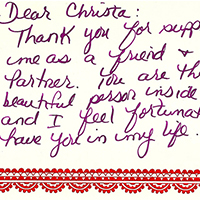 Dear Christa:
Thank you for supp
me as a friend &
Partner. You are th
beautiful person inside
and I feel fortunat
have you in my life.